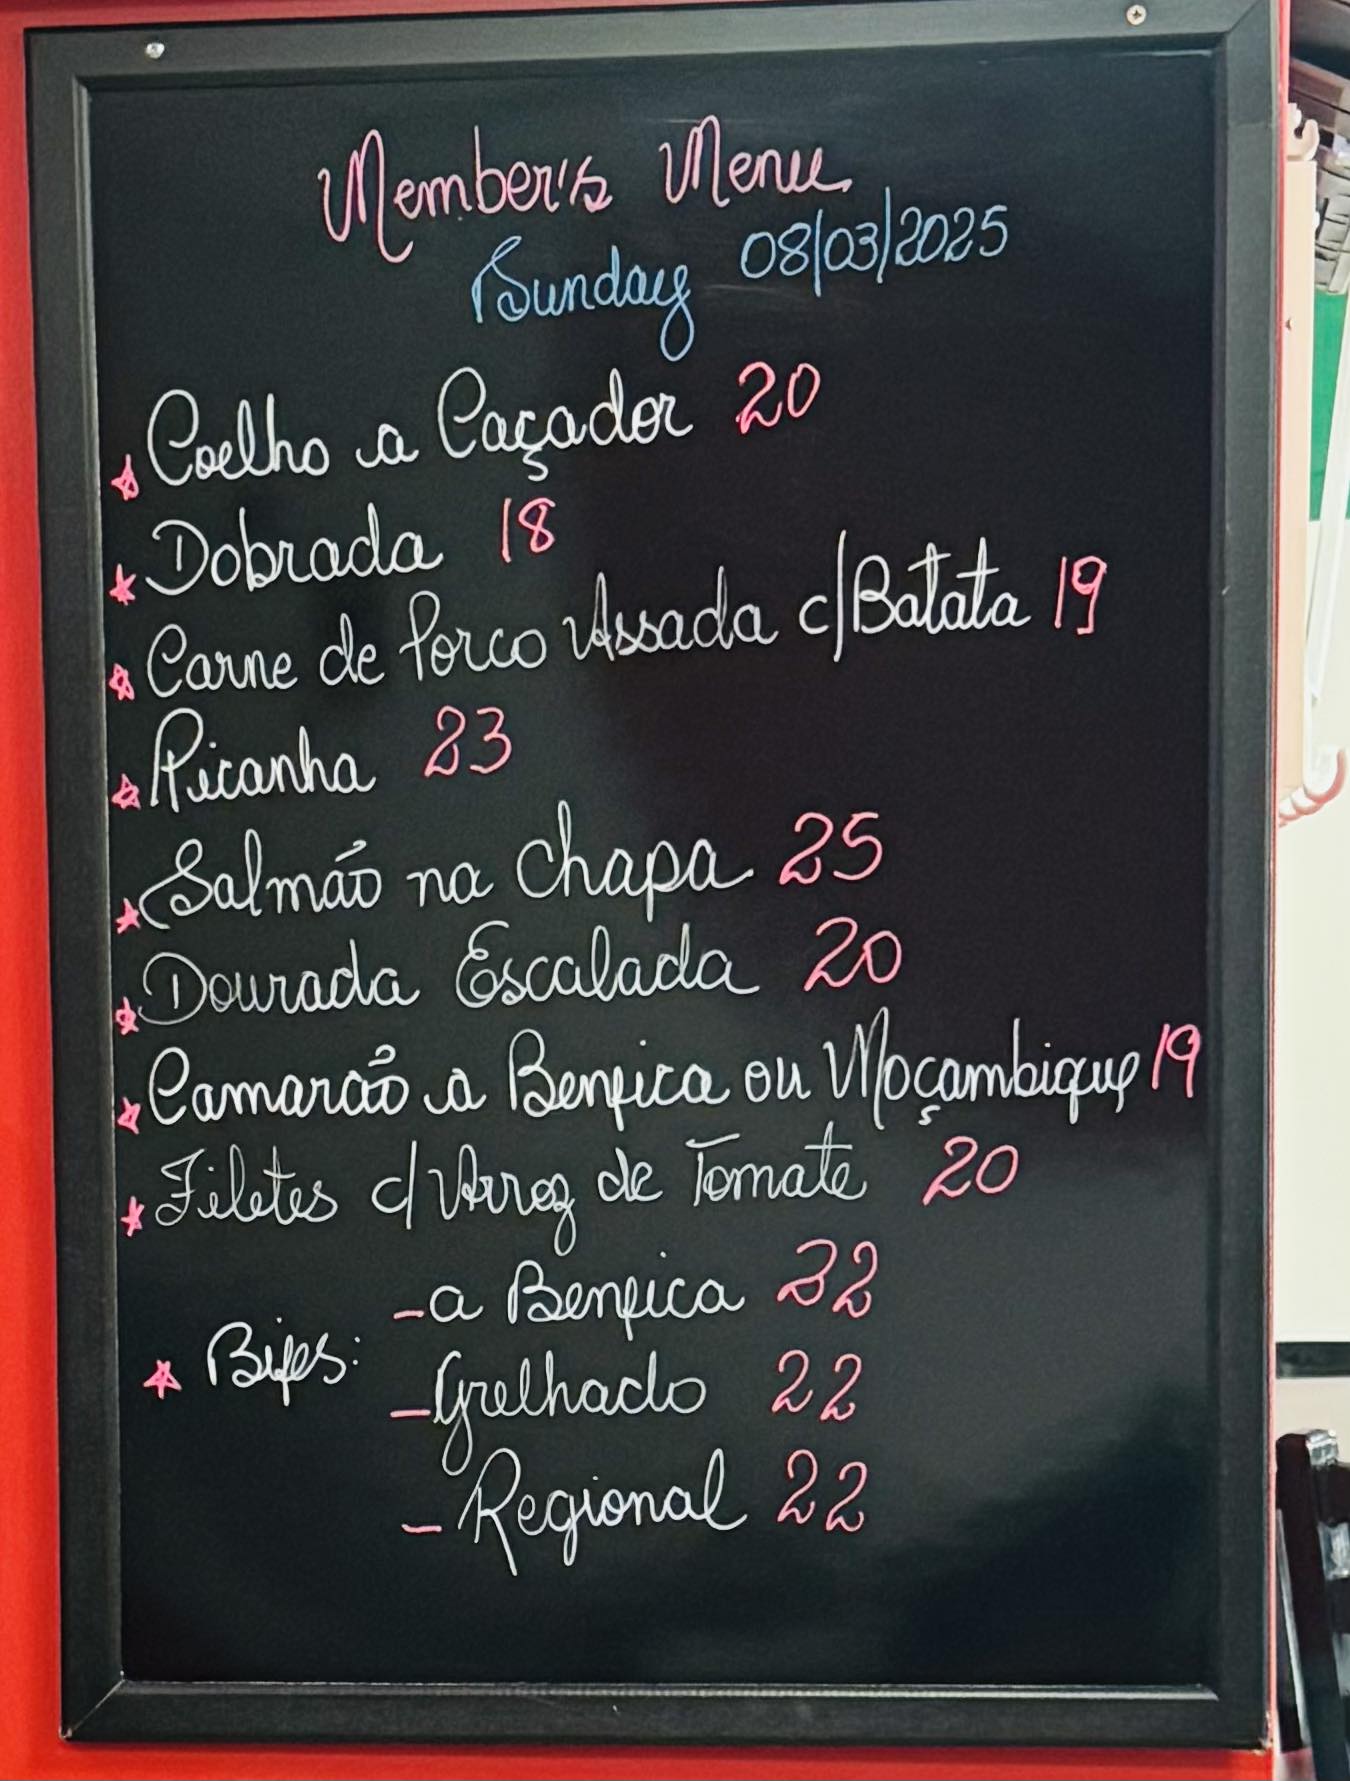 Member's Menu
Sunday 08/03/2025
Coelho a Caçador 20
Dobrada 18
Carne de Porco Assada c/Batata 19
Picanha 23
Salmão na chapa 25
Dourada Escalada 20
Camarão a Benfica ou Moçambique 19
Filetes c/Arroz de Tomate 20
Bifes:
-a Benfica 22
-Grelhado 22
-Regional 22